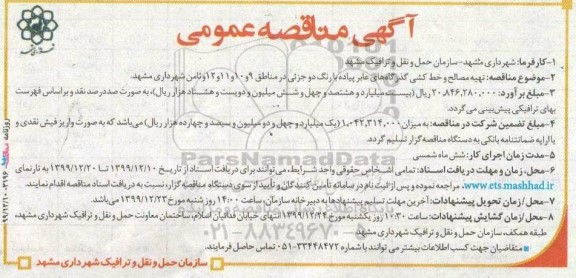 آگهی مناقصه عمومی
۱-کارفرما: شهرداری مشهد- سازمان حمل و نقل و ترافیک مشهد
۲-موضوع مناقصه: تهیه مصالح و خط کشی گذرگاه‌های عابر پیاده با رنگ دو جزئی در مناطق ۹و۱۰و۱۱و۱۲وثامن شهرداری مشهد.
۳-مبلغ برآورد: ۲۰,۸۴۶,۲۸۰,۰۰۰ ریال (بیست میلیارد و هشتصد و چهل و شش میلیون و دویست و هشتاد هزار ریال)، به صورت صددرصد نقد و براساس فهرست
بهای ترافیکی پیش‌بینی می‌گردد.
۴-مبلغ تضمین شرکت در مناقصه: به میزان ۱,۰۴۲,۳۱۴,۰۰۰ (یک میلیارد و چهل و دو میلیون و سیصد و چهارده هزار ریال) می‌باشد که به صورت واریز فیش نقدی و
یا ارایه ضمانتنامه بانکی به دستگاه مناقصه‌گزار تسلیم گردد.
۵-مدت زمان اجرای کار: شش ماه شمسی
۶-محل، زمان و مهلت دریافت اسناد: تمامی اشخاص حقوقی واجد شرایط، می‌توانند برای دریافت اسناد از تاریخ ۱۳۹۹/۱۲/۱۰ تا ۱۳۹۹/۱۲/۲۰ به تارنمای
www.ets.mashhad.ir مراجعه نموده و پس از ثبت نام در سامانه تأمین کنندگان و تأیید از سوی دستگاه مناقصه گزار، نسبت به دریافت اسناد مناقصه اقدام نمایند.
۷-محل/ زمان تحویل پیشنهادات: آخرین مهلت تسلیم پیشنهادها به دبیرخانه سازمان، ساعت ۱۴:۰۰ روز شنبه مورخ ۱۳۹۹/۱۲/۲۳ می‌باشد.
۸-محل/ زمان گشایش پیشنهادات: ساعت ۱۰:۳۰ روز یکشنبه مورخ ۱۳۹۹/۱۲/۲۴ انتهای خیابان فدائیان اسلام، ساختمان معاونت حمل و نقل و ترافیک شهرداری مشهد،
طبقه همکف، سازمان حمل و نقل و ترافیک شهرداری مشهد
متقاضیان جهت کسب اطلاعات بیشتر می توانند با شماره ۳۳۴۴۸۴۷۲-۰۵۱ تماس حاصل فرمایند.
سازمان حمل و نقل و ترافیک شهرداری مشهد
ParsNamadData
۰۲۱-۸۸۳۴۹۶۷۰